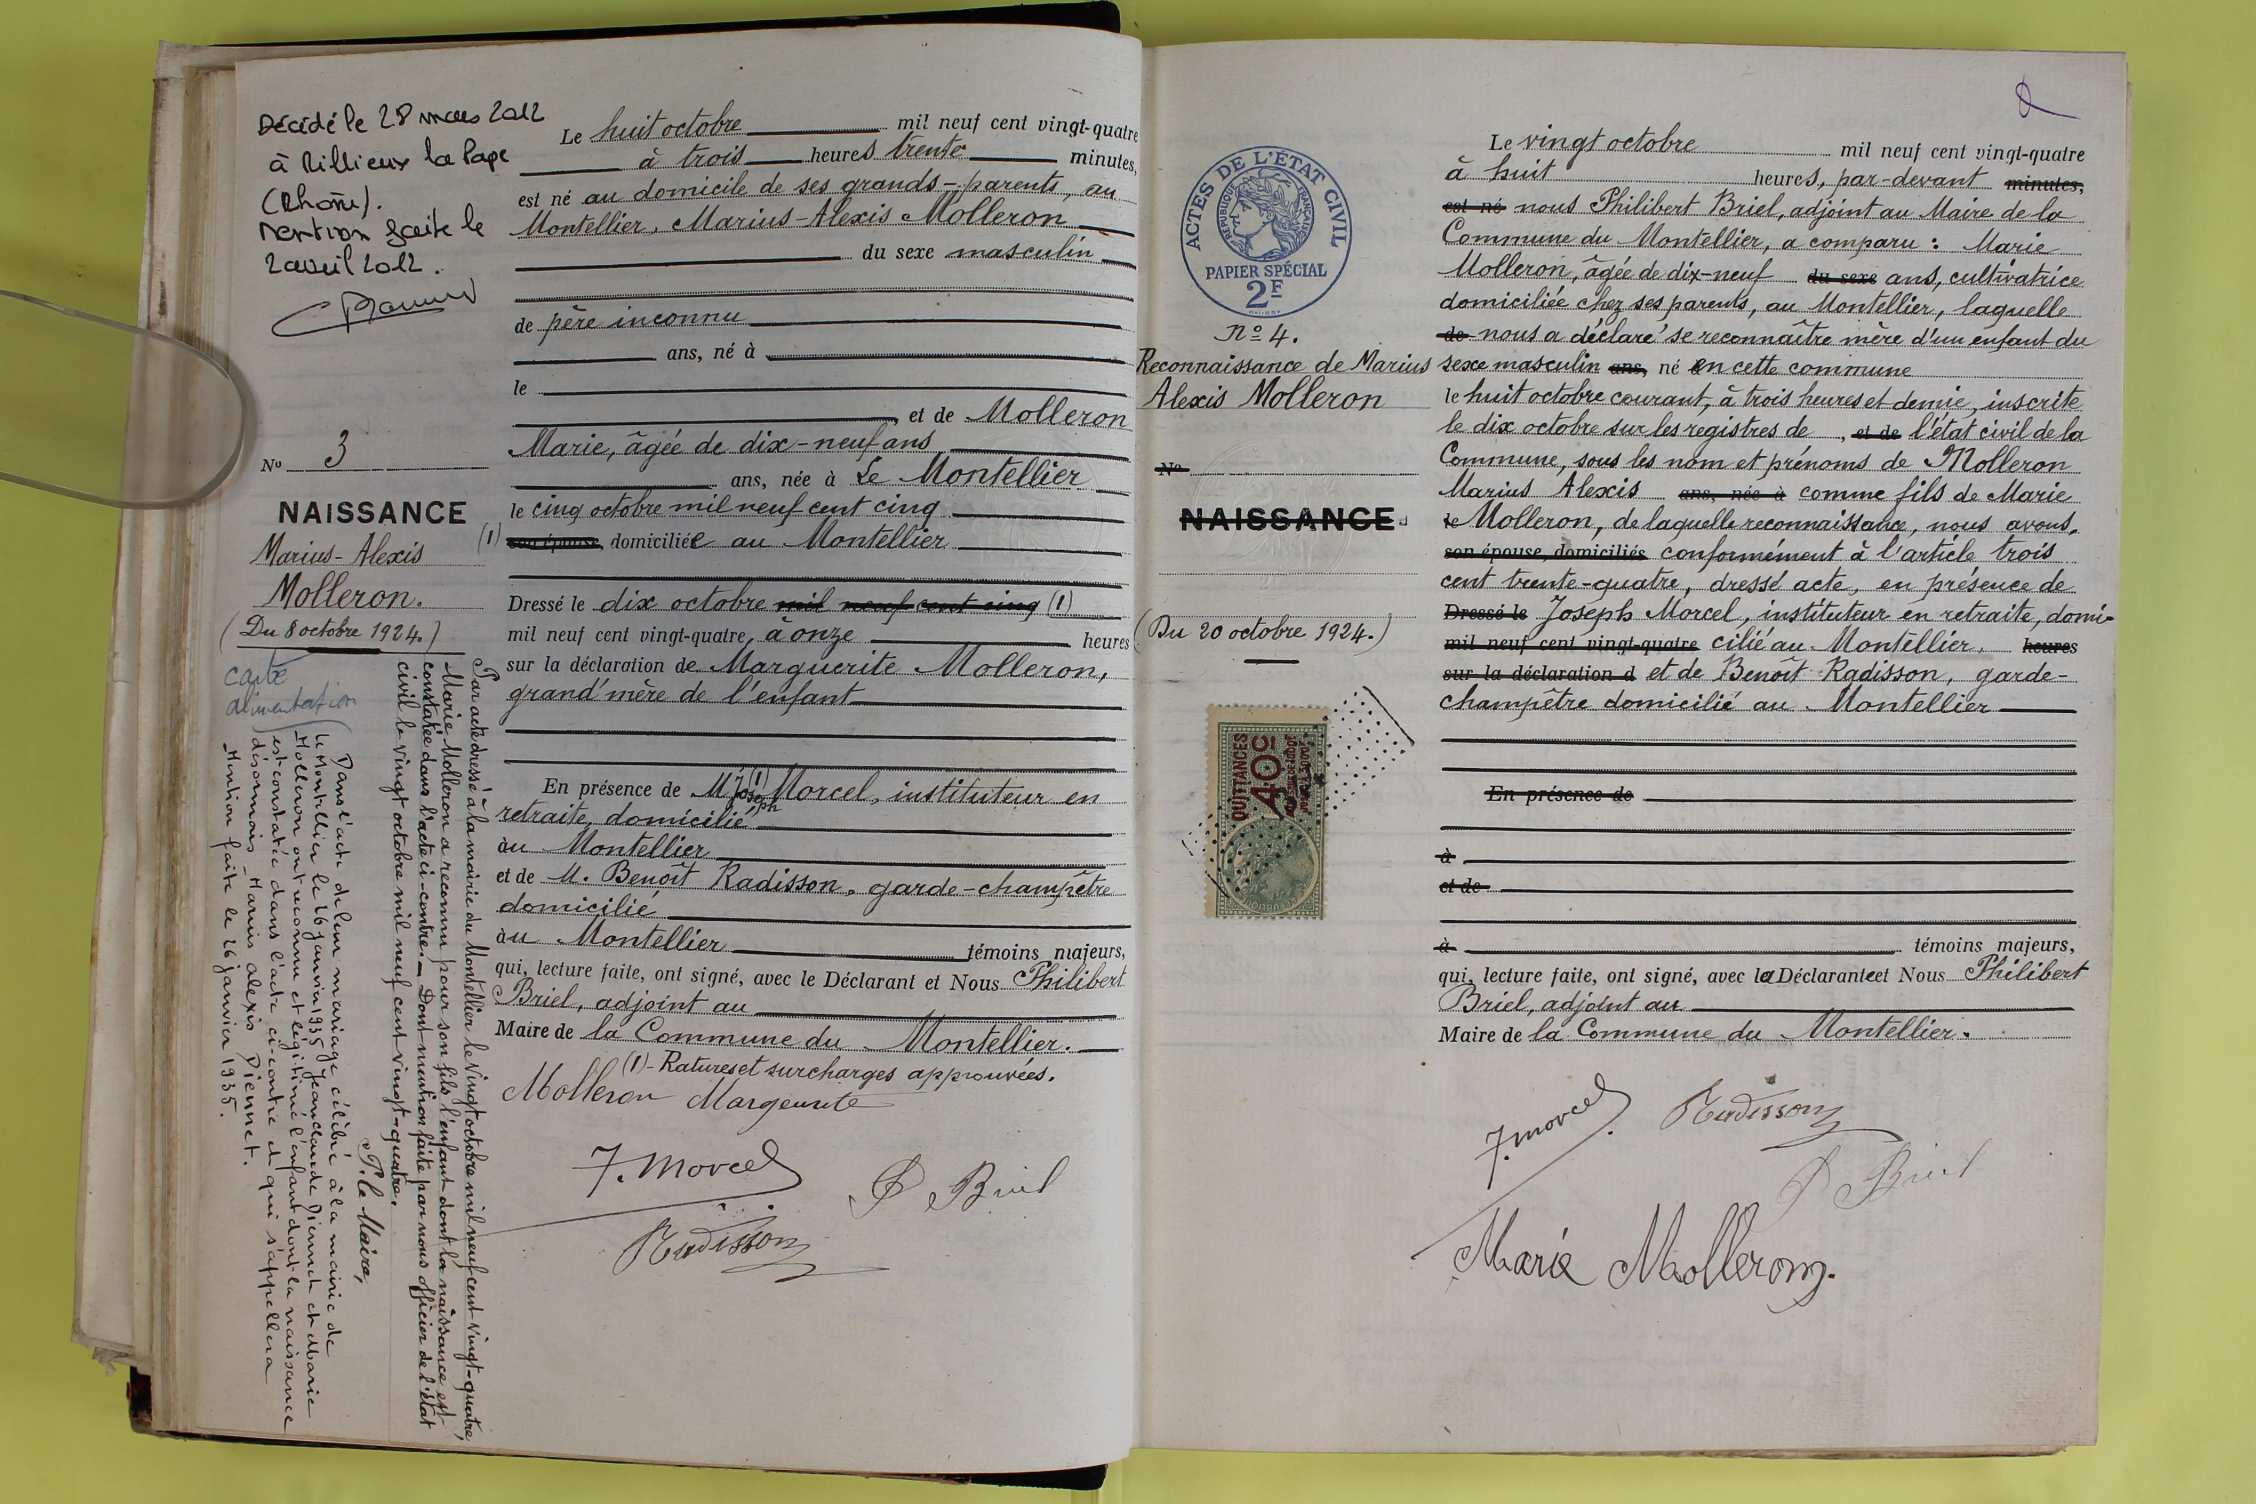 Décédé le 28 mars 2012
à Rillieux la Pape
(Rhône).
Mention faite le
2 avril 2012.
N° 3
NAISSANCE
Marius-Alexis
Molleron.
(Du 8 octobre 1924.)
carte
alimentation
Par acte dressé à la mairie du Montellier le vingt octobre mil neuf cent vingt-quatre,
Marie Molleron a reconnu pour son fils l'enfant dont la naissance est
constatée dans l'acte ci-contre. — Dont mention faite par nous officier de l'état
civil le vingt octobre mil neuf cent vingt-quatre.
P. le Maire,
Dans l'acte de leur mariage célébré à la mairie de
le Montellier le 26 janvier 1935 Jean Claude Piennet et Marie
Molleron ont reconnu et légitimé l'enfant dont la naissance
est constatée dans l'acte ci-contre et qui s'appellera
désormais Marius Alexis Piennet.
Mention faite le 26 janvier 1935.
Le huit octobre mil neuf cent vingt-quatre
à trois heures trente minutes,
est né au domicile de ses grands-parents, au
Montellier, Marius-Alexis Molleron
du sexe masculin
de père inconnu
ans, né à
le
et de Molleron
Marie, âgée de dix-neuf ans
ans, née à Le Montellier
le cinq octobre mil neuf cent cinq
(1) son épouse, domiciliée au Montellier
Dressé le dix octobre mil neuf cent cinq (1)
mil neuf cent vingt-quatre, à onze heures
sur la déclaration de Marguerite Molleron,
grand'mère de l'enfant
En présence de M. Joseph (1) Morcel, instituteur en
retraite, domicilié
au Montellier
et de M. Benoît Radisson, garde-champêtre
domicilié
au Montellier témoins majeurs,
qui, lecture faite, ont signé, avec le Déclarant et Nous Philibert
Briel, adjoint au
Maire de la Commune du Montellier.
(1) - Ratures et surcharges approuvées.
Molleron Margeurite
J. Morcel
P Briel
Radisson
ACTES DE L'ÉTAT CIVIL
RÉPUBLIQUE FRANÇAISE
PAPIER SPÉCIAL
2F
N° 4.
Reconnaissance de Marius
Alexis Molleron
N°
NAISSANCE
(Du 20 octobre 1924.)
QUITTANCES
40c
Le vingt octobre mil neuf cent vingt-quatre
à huit heures, par-devant minutes,
est né nous Philibert Briel, adjoint au Maire de la
Commune du Montellier, a comparu : Marie
Molleron, âgée de dix-neuf du sexe ans, cultivatrice
domiciliée chez ses parents, au Montellier, laquelle
de nous a déclaré se reconnaître mère d'un enfant du
sexe masculin ans, né en cette commune
le huit octobre courant, à trois heures et demie, inscrite
le dix octobre sur les registres de , et de l'état civil de la
Commune, sous les nom et prénoms de Molleron
Marius Alexis ans, née à comme fils de Marie
le Molleron, de laquelle reconnaissance, nous avons,
son épouse, domiciliés conformément à l'article trois
cent trente-quatre, dressé acte, en présence de
Dressé le Joseph Morcel, instituteur en retraite, domi-
mil neuf cent vingt-quatre cilié au Montellier, heures
sur la déclaration d et de Benoît Radisson, garde-
champêtre domicilié au Montellier
En présence de
à
et de
à témoins majeurs,
qui, lecture faite, ont signé, avec la Déclarante et Nous Philibert
Briel, adjoint au
Maire de la Commune du Montellier.
J. Morcel
Radisson
P Briel
Marie Molleron.